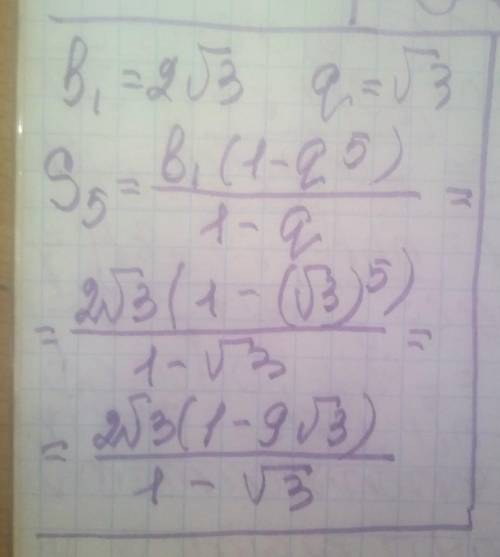 b₁ = 2√3 q = √3
S₅ = b₁(1-q⁵) / 1-q =
= 2√3(1-(√3)⁵) / 1-√3 =
= 2√3(1-9√3) / 1-√3